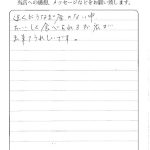 当店への感想、メッセージなどをお願い致します。
近くおうなぎ屋のない中
おいしく食べられるお店が
出来てうれしいです。